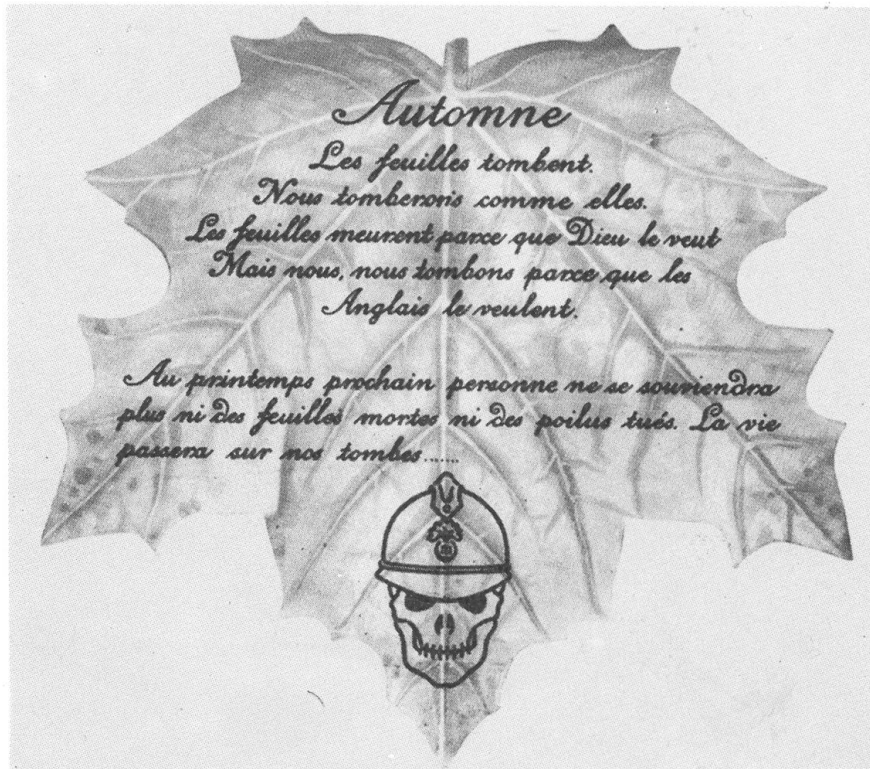 Automne
Les feuilles tombent.
Nous tomberons comme elles.
Les feuilles meurent parce que Dieu le veut
Mais nous, nous tombons parce que les
Anglais le veulent.
Au printemps prochain personne ne se souviendra
plus ni des feuilles mortes ni des poilus tués. La vie
passera sur nos tombes.......